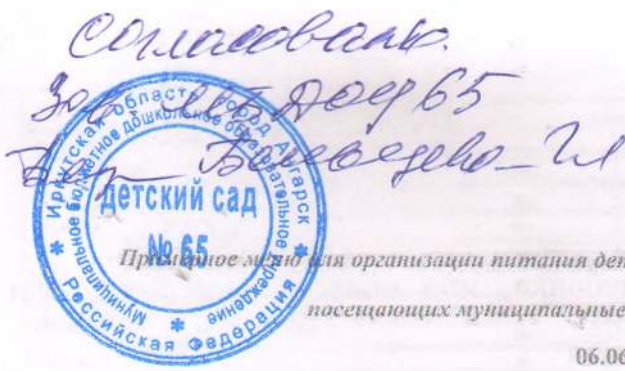 Согласовано.
Зав МБДОУ 65
Иркутская область город Ангарск
Российская Федерация
Муниципальное бюджетное дошкольное образовательное учреждение
детский сад
№ 65
Примерное меню для организации питания дет
посещающих муниципальные
06.06